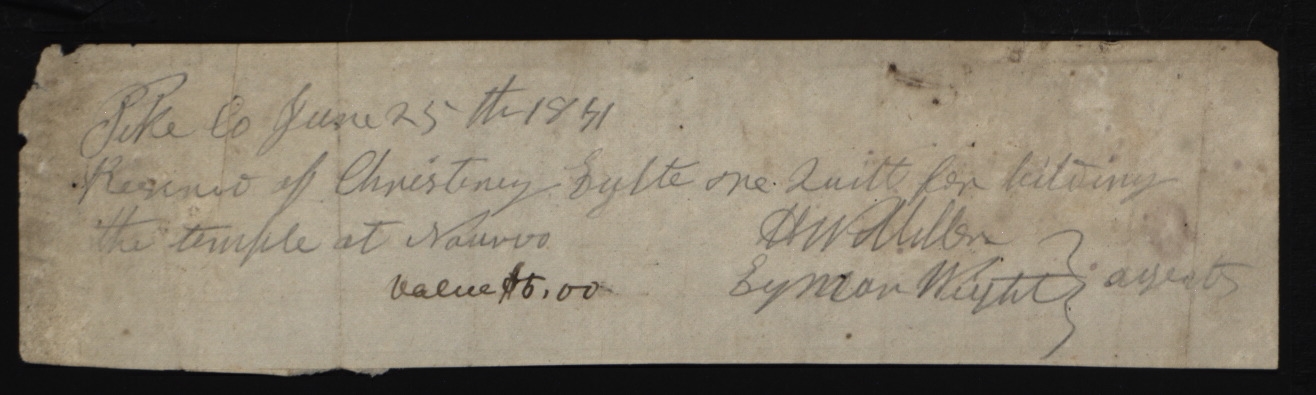 Pike Co June 25th 1841
Received of Christeney Lylte one Quilt for bilding
the temple at Nauvoo
H W Miller
value $6.00 Lyman Wight } agents